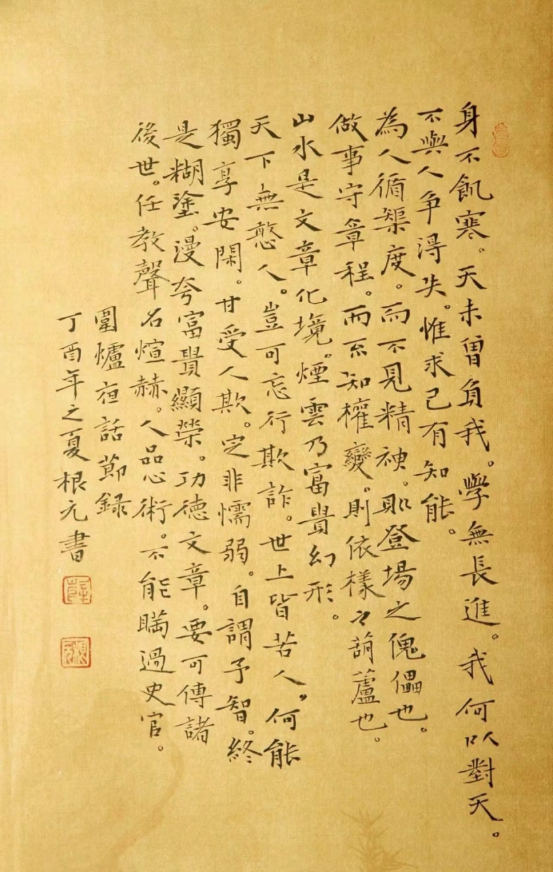 身不飢寒。天未曾負我。學無長進。我何以對天。
不與人争得失。惟求己有知能。
為人循榘度。而不見精神。則登場之傀儡也。
做事守章程。而不知權變。則依樣之葫蘆也。
山水是文章化境。煙雲乃富貴幻形。
天下無憨人。豈可忘行欺詐。世上皆苦人。何能
獨享安閑。甘受人欺。定非懦弱。自謂予智。終
是糊塗。漫夸富貴顯榮。功德文章。要可傳諸
後世。任教聲名煊赫。人品心術。不能瞞過史官。
圍爐夜話節録
丁酉年之夏根元書